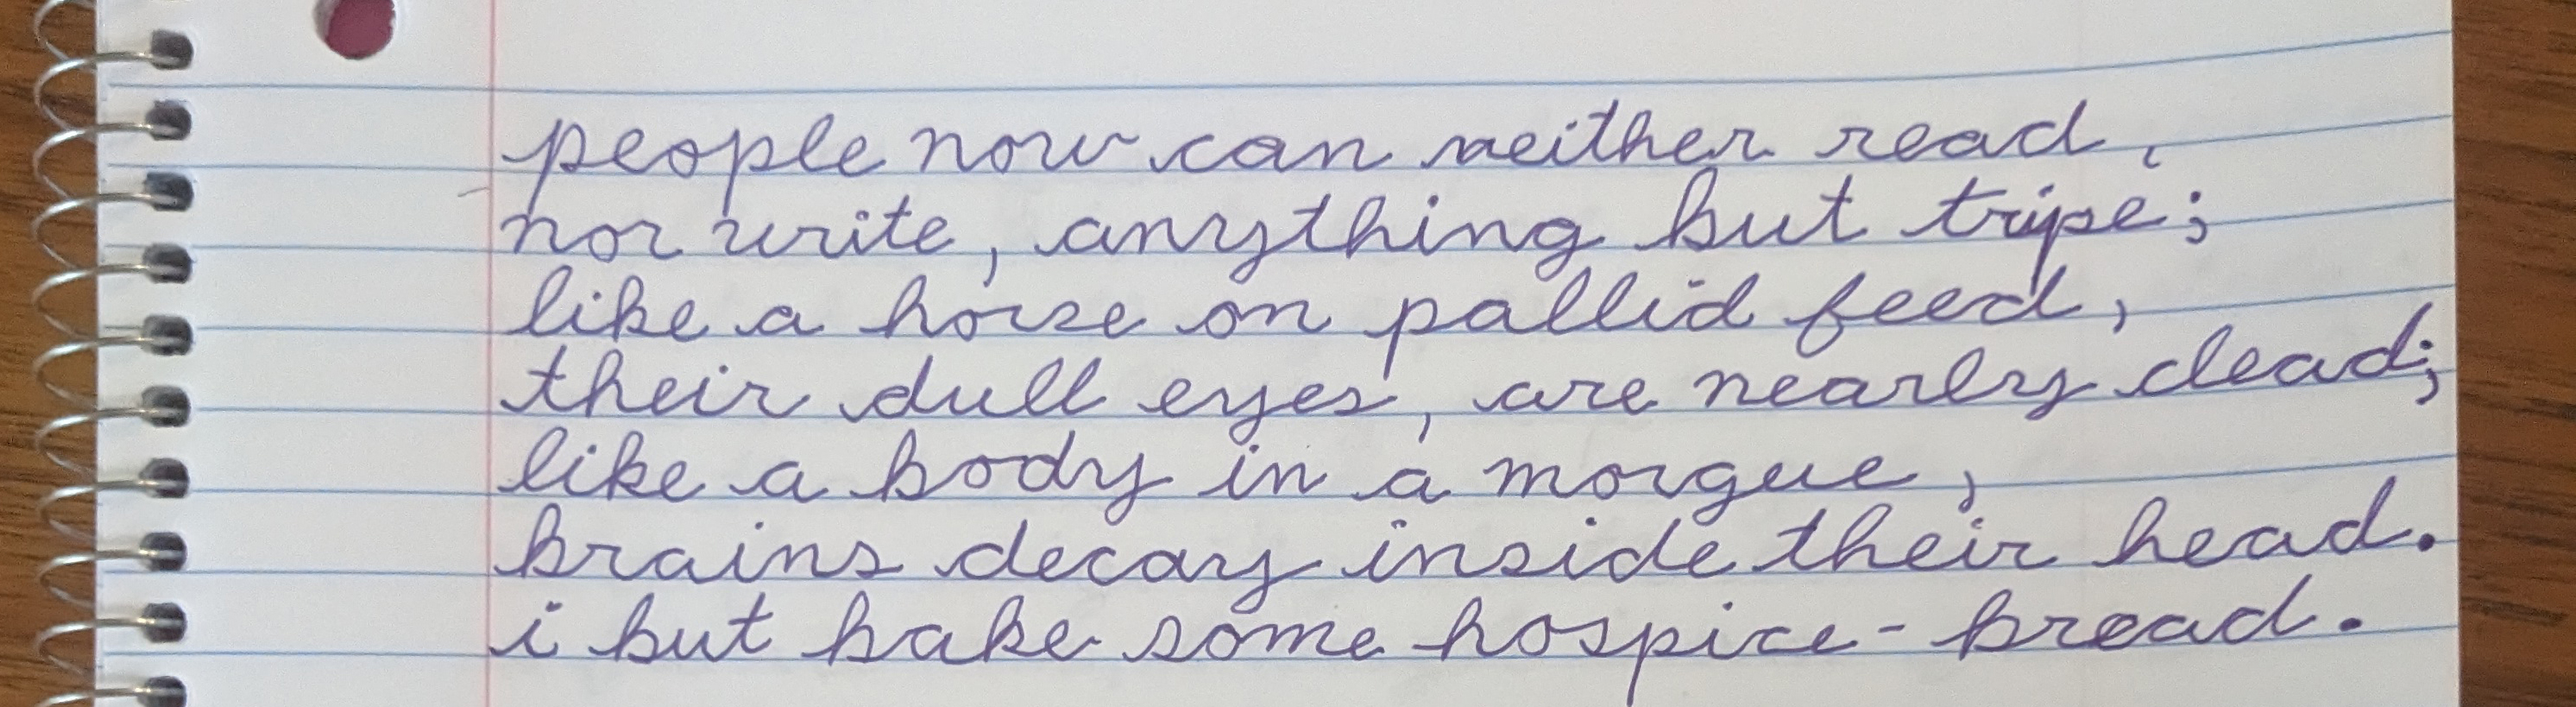 people now can neither read,
nor write, anything but tripe;
like a horse on pallid feed,
their dull eyes, are nearly dead;
like a body in a morgue,
brains decay inside their head.
i but bake some hospice-bread.